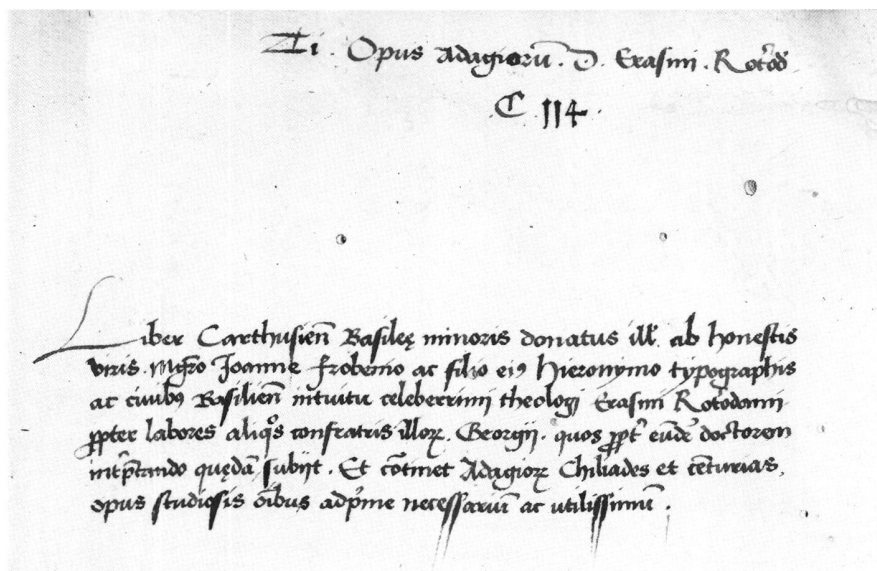 Ti. Opus Adagiorū. D. Erasmi. Roterod
C 114.
Liber Carthusień Basileę minoris donatus ill. ab honestis
viris. Mgr̄o Joanne Frobenio ac filio eiꝰ Hieronymo typographis
ac ciuibꝰ Basilień intuitu celeberrimi theologi Erasmi Roterodami
ꝓpter labores aliqͦs confratris illoꝝ. Georgij. quos ꝓpt̄ eūdē doctorem
int̄p̄tando quędā subijt. Et cōtinet Adagioꝝ Chiliades et cēturias,
opus studiosis oībus adp̄me necessariū ac utilissimū.